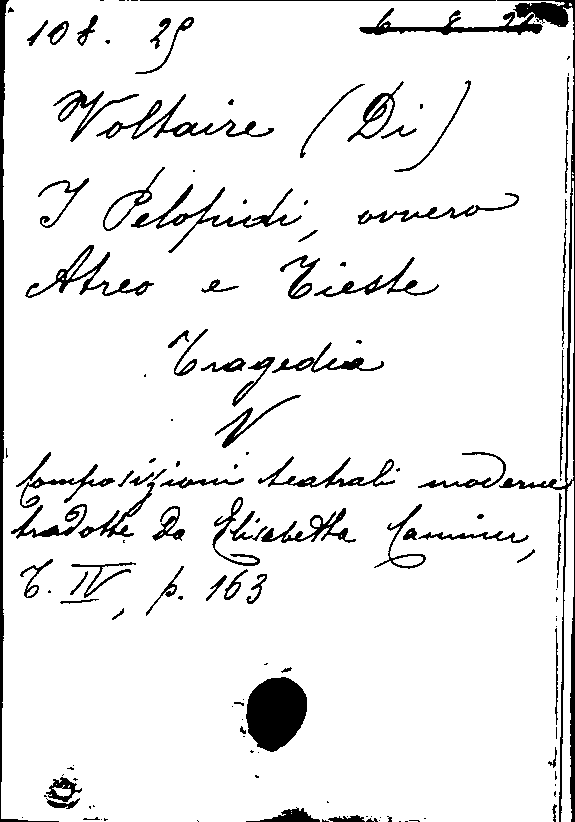 108. 25 6. 8. 21
Voltaire (Di)
I Pelopidi, ovvero
Atreo e Tieste
Tragedia
V
Composizioni teatrali moderne
tradotte da Elisabetta Caminer,
T. IV, p. 163